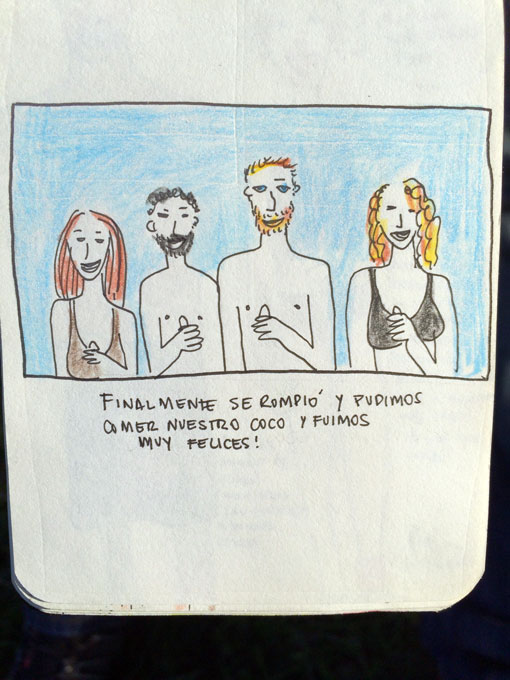 FINALMENTE SE ROMPIÓ Y PUDIMOS
COMER NUESTRO COCO Y FUIMOS
MUY FELICES!